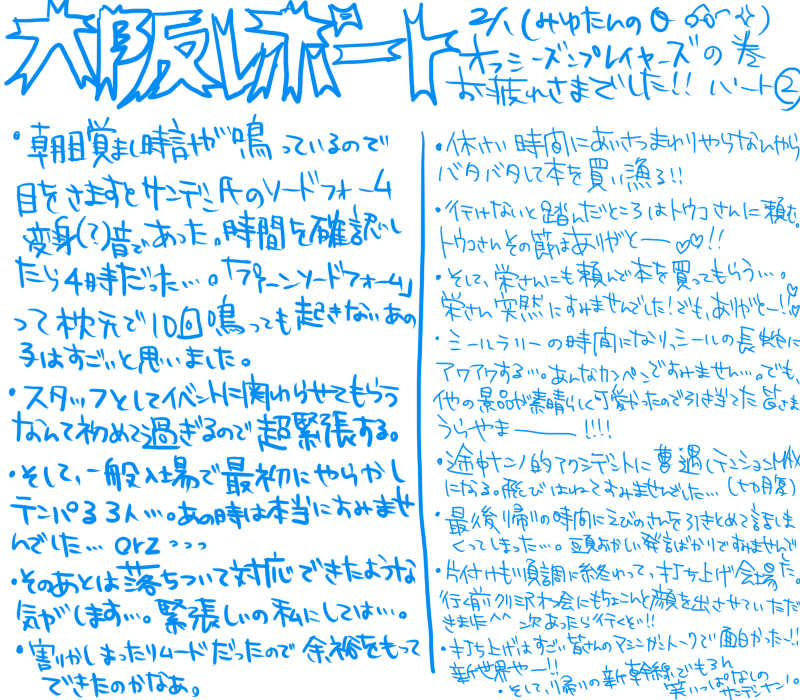 大阪レポート
2/1 (みゆたんの
オフシーズンプレイヤーズの巻
お疲れさまでした!! パート②
・朝目覚まし時計が鳴っているので
目をさますとサンデン氏のソードフォーム
変身(?)音であった。時間を確認し
たら4時だった…。「プァーンソードフォーム」
って枕元で10回鳴っても起きないあの
子はすごいと思いました。
・スタッフとしてイベントに関わらせてもらう
なんて初めて過ぎるので超緊張する。
・そして、一般入場で最初にやらかし
テンパる3人…。あの時は本当にすみませ
んでした… orz…
・そのあとは落ちついて対応できたような
気がします…。緊張しいの私にしては…。
・割としまったりムードだったので余裕をもって
できたのかなあ。
・休けい時間にあいさつまわりやらなんやら
バタバタして本を買い漁る!!
・行けないと踏んだところはトウコさんに頼む。
トウコさんその節はありがとー♡♡!!
・そして、栄さんにも頼んで本を買ってもらう…。
栄さん突然にすみませんでした!でも、ありがとー!!
・シールラリーの時間になり、シールの長蛇に
アワアワする…。あんなカンペンですみません…。でも、
他の景品が素晴らしく可愛かったので引き当てた皆さま
うらやまー!!!!
・途中ナノ的アクシデントに遭遇しテンションMAX
になる。飛びはねてすみませんでした…(切腹)
・最後帰りの時間にえびのさんを引きとめて話しま
くってしまった…。頭おかしい発言ばかりですみませんで
・片付けも順調に終わって、打ち上げ会場だ。
行く前クリミネわ会にもちょこんと顔を出させていただ
きました^^ 次あったら行くどい!!
・打ち上げはすごい皆さんのマシンガントークで面白かったー!!
新世界やー!!
・そして、帰りの新幹線でもろん
笑いっぱなしの
サンデンヤン!。